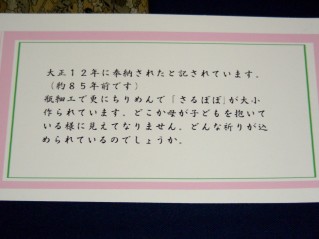 大正１２年に奉納されたと記されています。
（約８５年前です）
瓶細工で更にちりめんで「さるぼぼ」が大小
作られています。どこか母が子どもを抱いて
いる様に見えてなりません。どんな祈りが込
められているのでしょうか。